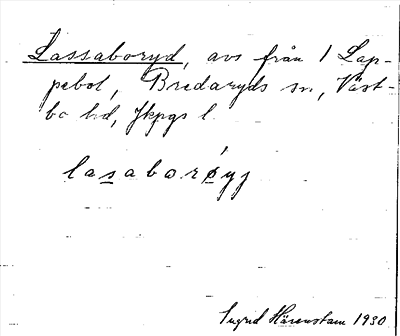 Lassaboryd, avs från 1 Lap-
pebol, Bredaryds sn, Väst-
bo hd, Jkpgs l.
lasaborøyj
Ingrid Härenstam 1930